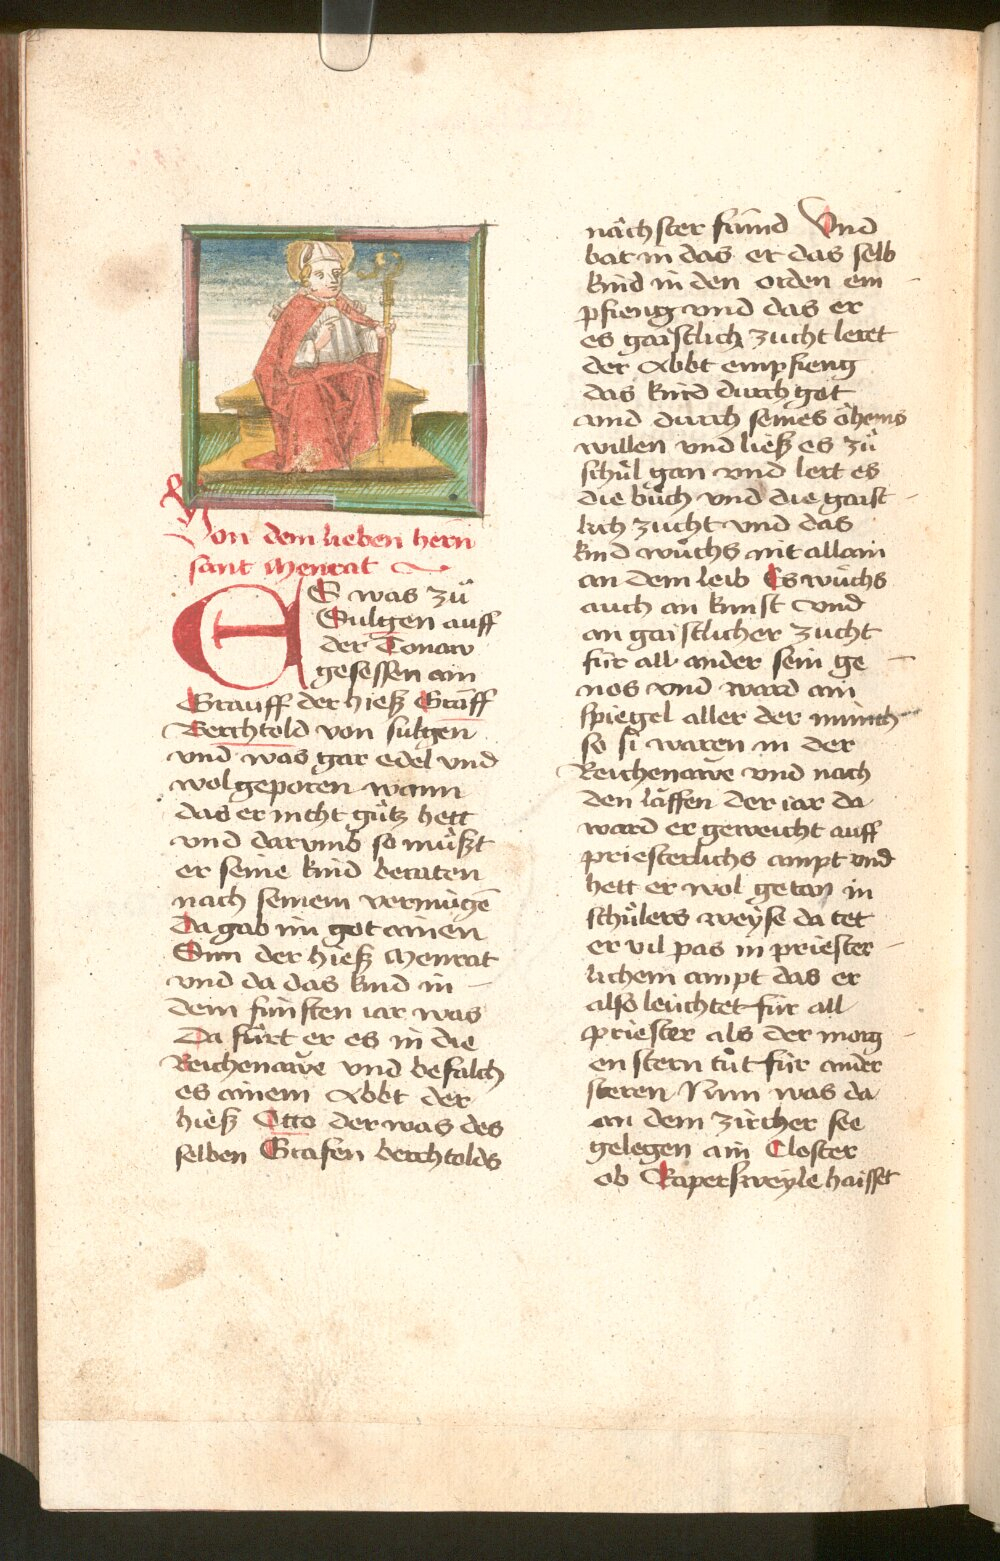 Von dem lieben hern
sant Menrat
ES was zuͦ
Sulgen auff
der Tonaw
gesessen ain
Grauff der hieß Graff
Berchtold von sulgen
vnd was gar edel vnd
wolgeporen wann
das er nicht guͦtz hett
vnd darvmb so muͤßt
er seine kind beraten
nach seinem vermuͤgē
Da gab im got ainen
Sun der hieß Menrat
vnd da das kind in
dem fünften iar was
Da fuͦrt er es in die
Reichenawe vnd befalch
es ainem Abbt der
hieß Otto der was des
selben Grafen berchtolds
nächster fründ Vnd
bat in das er das selb
kind in den orden em
pfieng vnd das er
es gaistlich zucht leret
der Abbt empfieng
das kind durch got
vnd durch seines öhems
willen vnd ließ es zuͦ
schuͦl gan vnd lert es
die buͤch vnd die gaist
lich zucht vnd das
kind wuͦchs nit allain
an dem leib Es wuͦchs
auch an kunst vnd
an gaistlicher zucht
für all ander sein ge
nos vnd ward ain
spiegel aller der münch
so si waren in der
Reichenawe vnd nach
den läffen der iar da
ward er geweicht auff
priesterlichs ampt vnd
hett er wol getan in
schuͦlers weyse da tet
er vil pas in priester
lichem ampt das er
also leüchtet für all
priester als der morg
en stern tuͦt für ander
steren Nun was da
an dem zircher see
gelegen ain Closter
ob Rapersweyle haisset